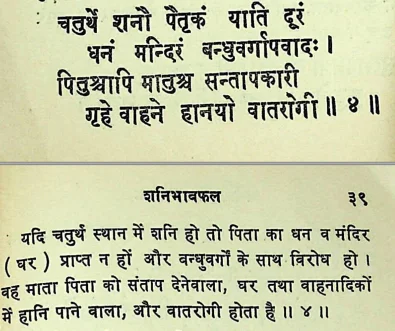 चतुर्थे शनौ पैतृकं याति दूरं
धनं मन्दिरं बन्धुवर्गापवादः ।
पितुश्चापि मातुश्च सन्तापकारी
गृहे वाहने हानयो वातरोगी ॥ ४ ॥
शनिभावफल ३९
यदि चतुर्थ स्थान में शनि हो तो पिता का धन व मंदिर
( घर ) प्राप्त न हों और वन्धुवर्गों के साथ विरोध हो ।
वह माता पिता को संताप देनेवाला, घर तथा वाहनादिकों
में हानि पाने वाला, और वातरोगी होता है ॥ ४ ॥